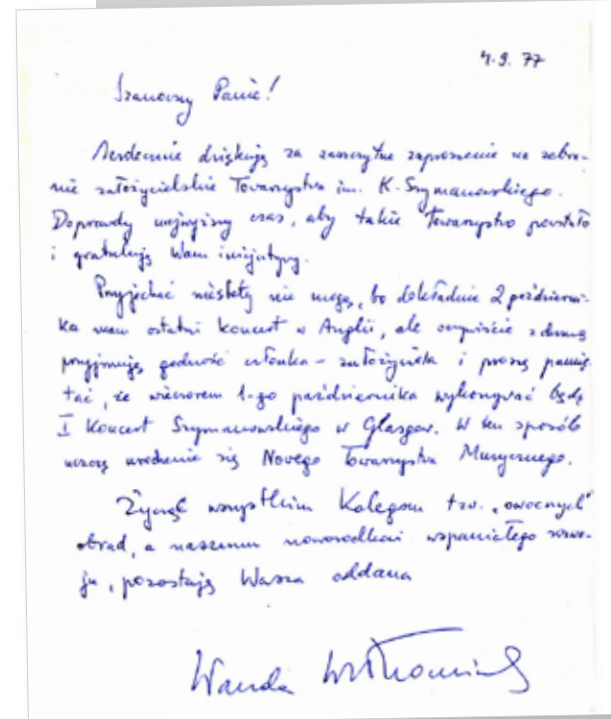 4.9.77
Szanowny Panie!
Serdecznie dziękuję za zaszczytne zaproszenie na zebra-
nie założycielskie Towarzystwa im. K. Szymanowskiego.
Doprawdy najwyższy czas, aby takie Towarzystwo powstało
i gratuluję Wam inicjatywy.
Przyjechać niestety nie mogę, bo dokładnie 2 październi-
ka mam ostatni koncert w Anglii, ale oczywiście z dumą
przyjmuję godność członka-założyciela i proszę pamię-
tać, że wieczorem 1-go października wykonywać będę
I Koncert Szymanowskiego w Glasgow. W ten sposób
uczczę urodzenie się Nowego Towarzystwa Muzycznego.
Życząc wszystkim Kolegom tzw. "owocnych"
obrad, a naszemu noworodkowi wspaniałego rozwo-
ju, pozostaję Wasza oddana
Wanda Wiłkomirska